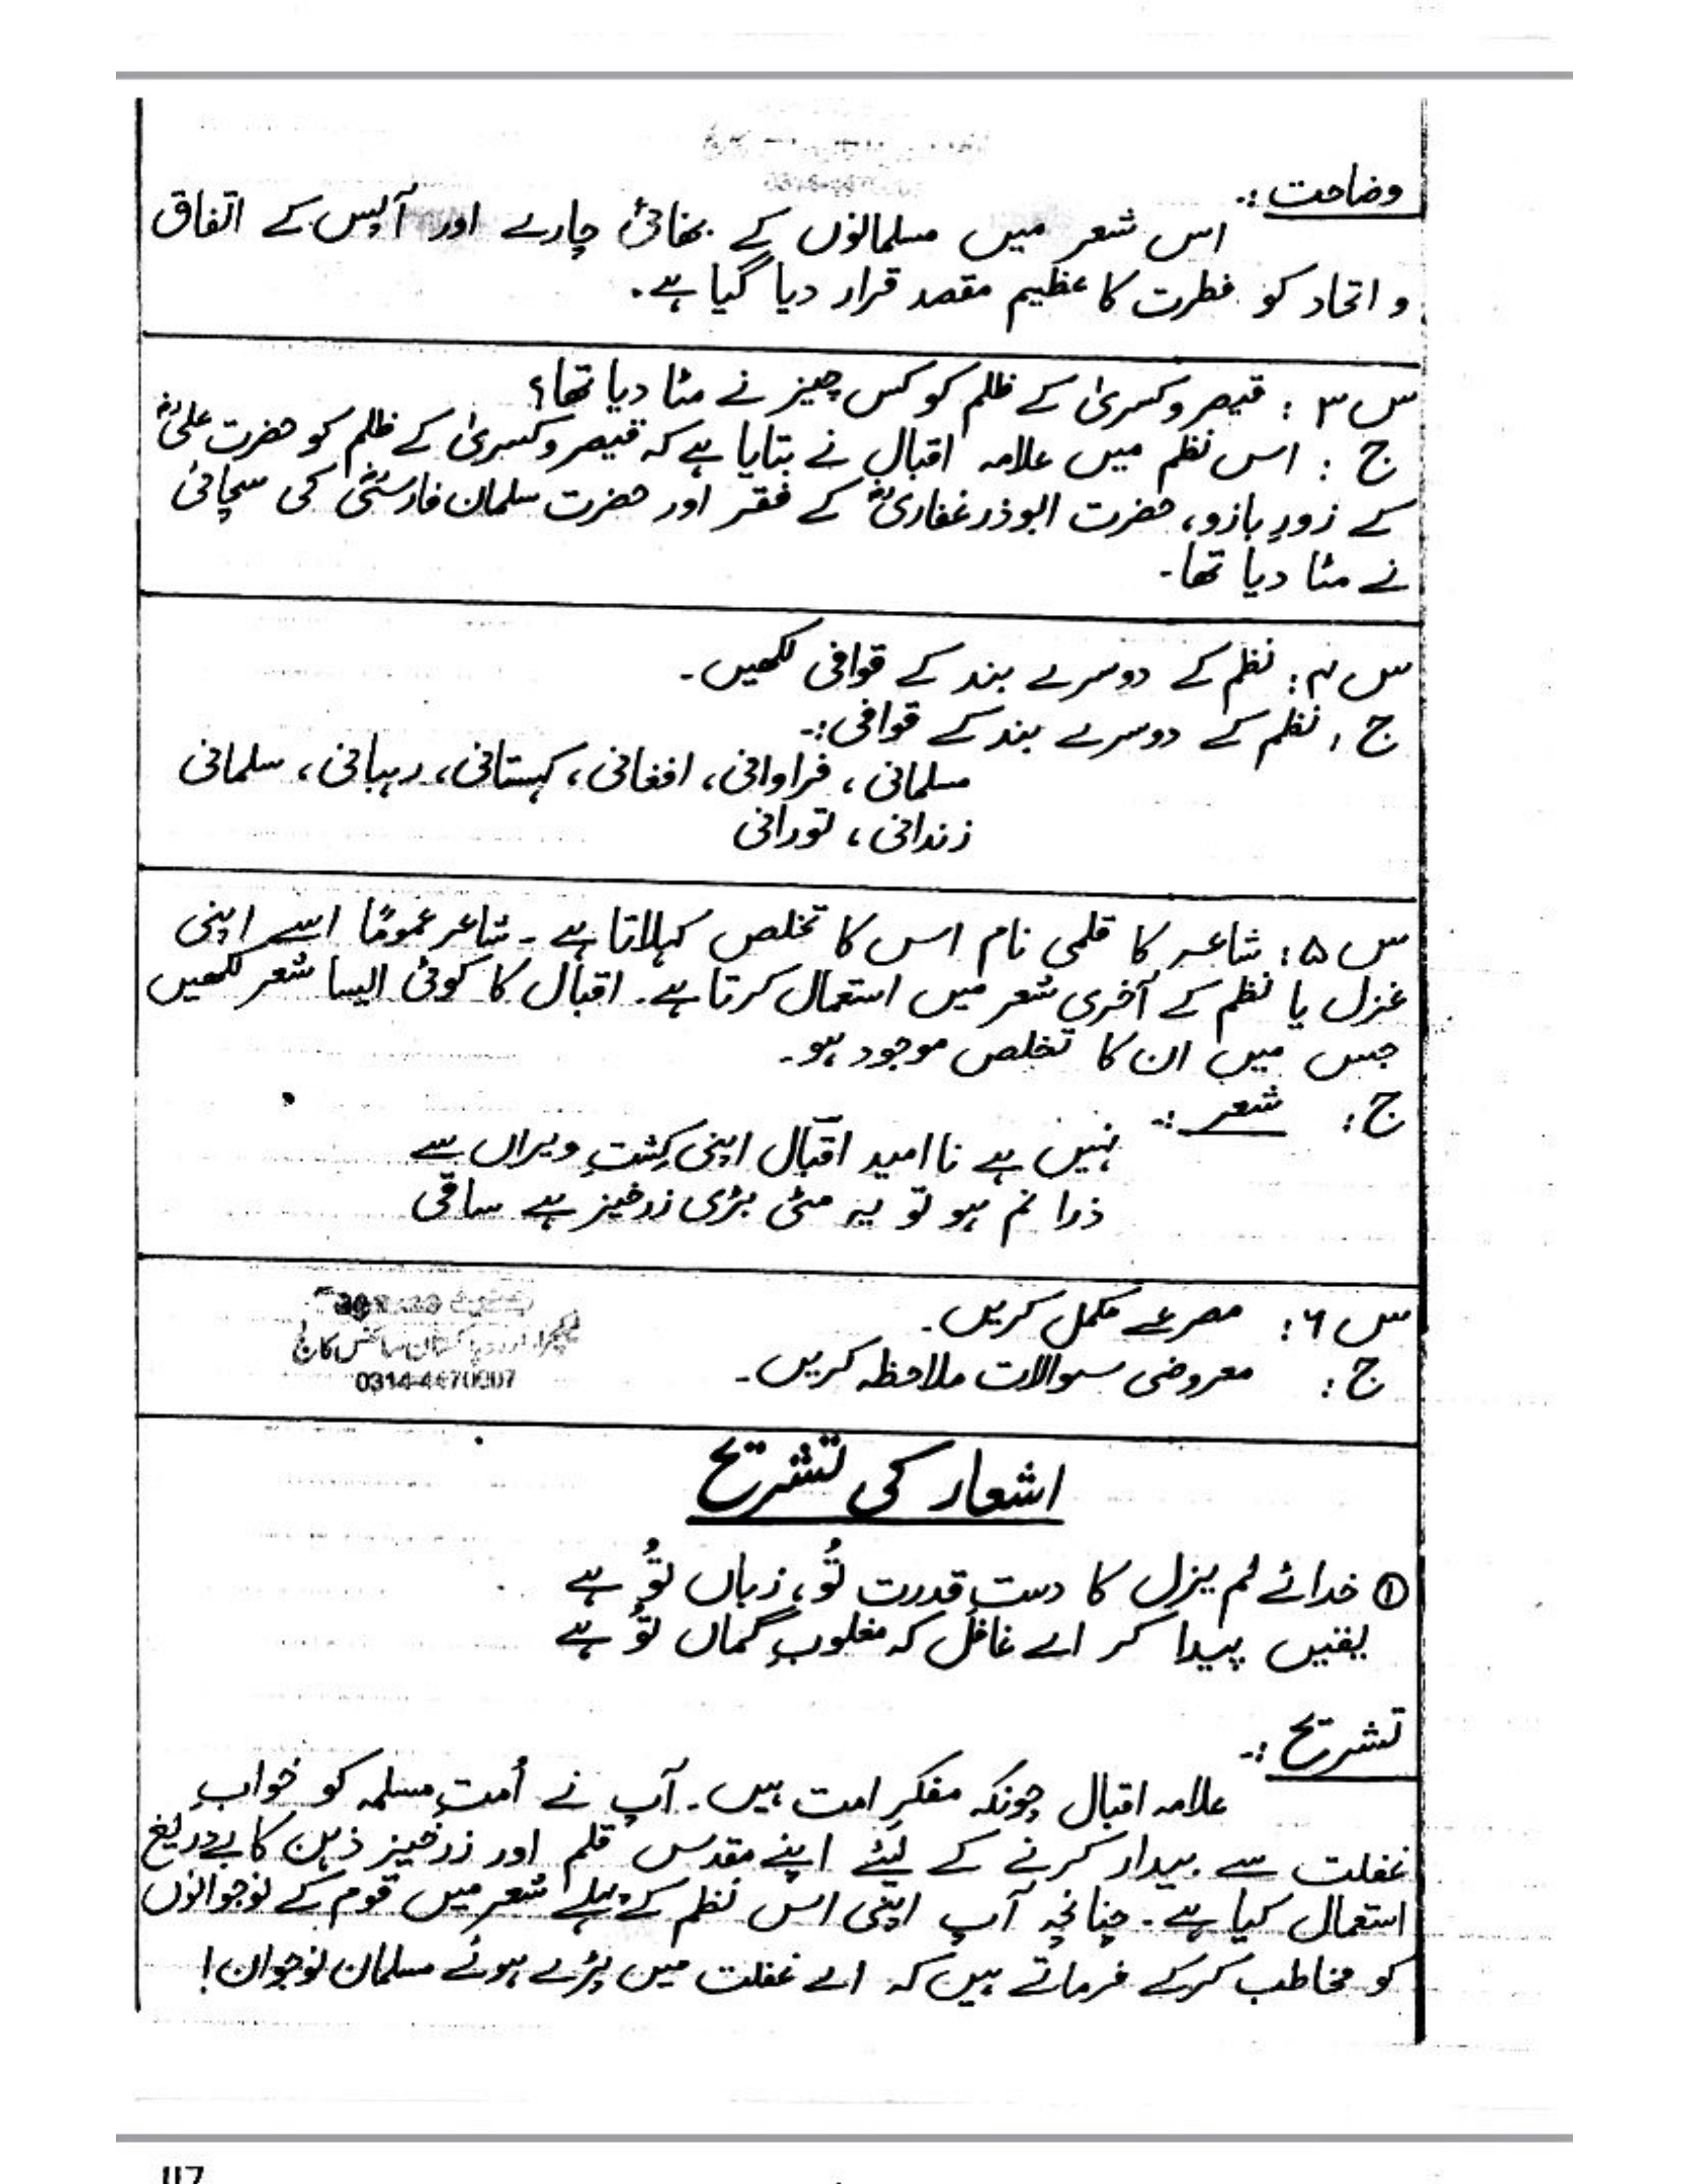 وضاحت :۔
اس شعر میں مسلمانوں کے بھائی چارے اور آپس کے اتفاق
و اتحاد کو فطرت کا عظیم مقصد قرار دیا گیا ہے۔
س ۳ : قیصر و کسریٰ کے ظلم کو کس چیز نے مٹا دیا تھا؟
ج : اس نظم میں علامہ اقبال نے بتایا ہے کہ قیصر و کسریٰ کے ظلم کو حضرت علیؓ
کے زورِ بازو، حضرت ابوذر غفاریؓ کے فقر اور حضرت سلمان فارسیؓ کی سچائی
نے مٹا دیا تھا۔
س ۴ : نظم کے دوسرے بند کے قوافی لکھیں۔
ج : نظم کے دوسرے بند کے قوافی :۔
مسلمانی ، فراوانی، افغانی، کہستانی، رہبانی، سلمانی
زندانی ، تورانی
س ۵ : شاعر کا قلمی نام اس کا تخلص کہلاتا ہے ۔ شاعر عموماً اسے اپنی
غزل یا نظم کے آخری شعر میں استعمال کرتا ہے۔ اقبال کا کوئی ایسا شعر لکھیں
جس میں ان کا تخلص موجود ہو۔
ج : شعر :۔
نہیں ہے نا امید اقبال اپنی کِشتِ ویراں سے
ذرا نم ہو تو یہ مٹی بڑی زرخیز ہے ساقی
س ۶ : مصرعے مکمل کریں۔
ج : معروضی سوالات ملاحظہ کریں۔
لیکچرار اردو پاکستان سائنس کالج
0314-4470007
اشعار کی تشریح
① خدائے لم یزل کا دستِ قدرت تُو، زباں تُو ہے
یقیں پیدا کر اے غافل کہ مغلوبِ گماں تُو ہے
تشریح :۔
علامہ اقبال چونکہ مفکرِ امت ہیں۔ آپ نے اُمتِ مسلمہ کو خوابِ
غفلت سے بیدار کرنے کے لیئے اپنے مقدس قلم اور زرخیز ذہن کا بے دریغ
استعمال کیا ہے۔ چنانچہ آپ اپنی اس نظم کے پہلے شعر میں قوم کے نوجوانوں
کو مخاطب کرکے فرماتے ہیں کہ اے غفلت میں پڑے ہوئے مسلمان نوجوان!
117